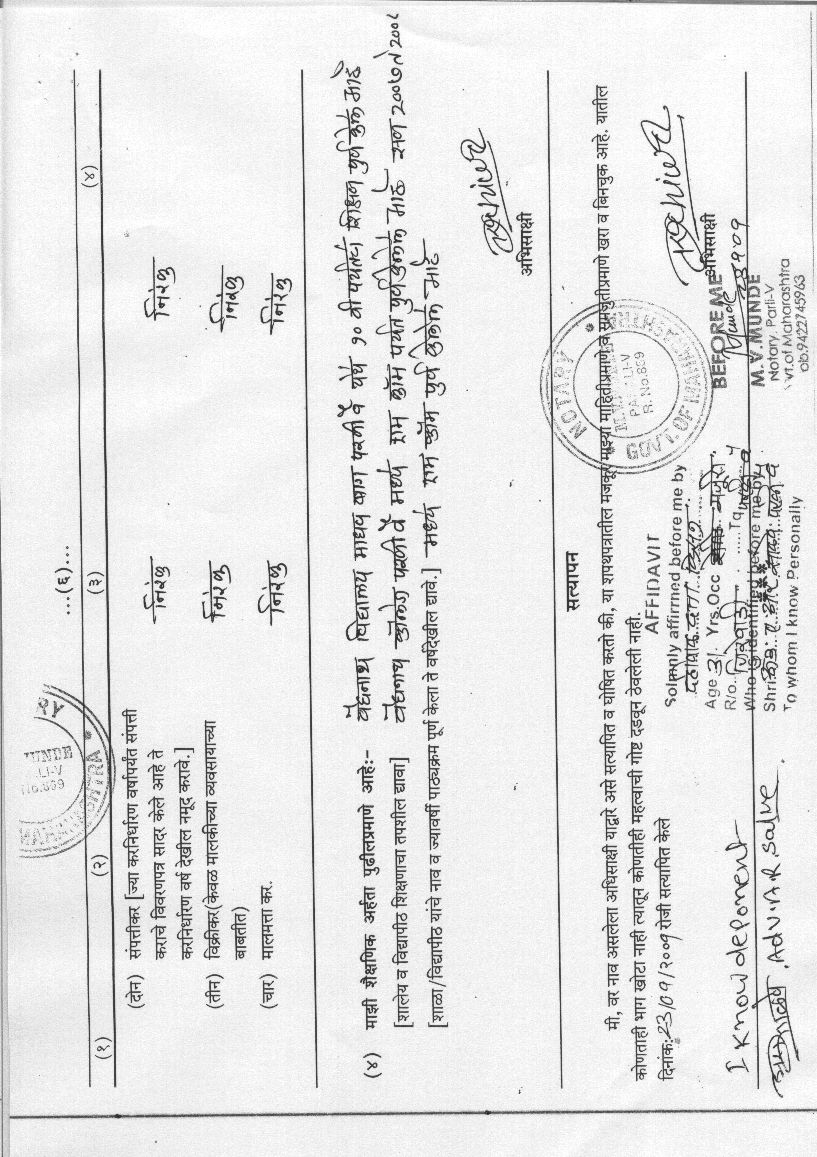 ...(६)...
(१) (२) (३) (४)
(दोन) संपत्तीकर [ज्या करनिर्धारण वर्षापर्यंत संपत्ती निरंक निरंक
कराचे विवरणपत्र सादर केले आहे ते
करनिर्धारण वर्ष देखील नमूद करावे.]
(तीन) विक्रीकर(केवळ मालकीच्या व्यवसायाच्या निरंक निरंक
बाबतीत)
(चार) मालमत्ता कर. निरंक निरंक
(४) माझी शैक्षणिक अर्हता पुढीलप्रमाणे आहे:- वैद्यनाथ विद्यालय माधव बाग परळीवै येथे १० वी पर्यंतचे शिक्षण पुर्ण केले आहे
[शालेय व विद्यापीठ शिक्षणाचा तपशील द्यावा] वैद्यनाथ कॉलेज परळीवै मध्ये
[शाळा/विद्यापीठ यांचे नाव व ज्यावर्षी पाठ्यक्रम पूर्ण केला ते वर्षदेखील द्यावे.]
अभिसाक्षी
सत्यापन
मी, वर नाव असलेला अधिसाक्षी याद्वारे असे सत्यापित व घोषित करतो की, या शपथपत्रातील मजकूर माझ्या माहितीप्रमाणे व समजुतीप्रमाणे खरा व बिनचुक आहे. यातील
कोणताही भाग खोटा नाही त्यातून कोणतीही महत्वाची गोष्ट दडवून ठेवलेली नाही.
दिनांक:23/09/2009 रोजी सत्यापित केले
अभिसाक्षी
AFFIDAVIT
Solmnly affirmed before me by
Age 31 Yrs,Occ
R/o.. Tq
Who is identified before me by
Shri
To whom I know Personally
BEFORE ME
M.V.MUNDE
Notary. Parli-V
vt.of Maharashtra
ob.9422745963
NOTARY
PARLI-V
R. No.859
GOVT. OF MAHARASHTRA
I know deponent
Adv. A.R. Salve